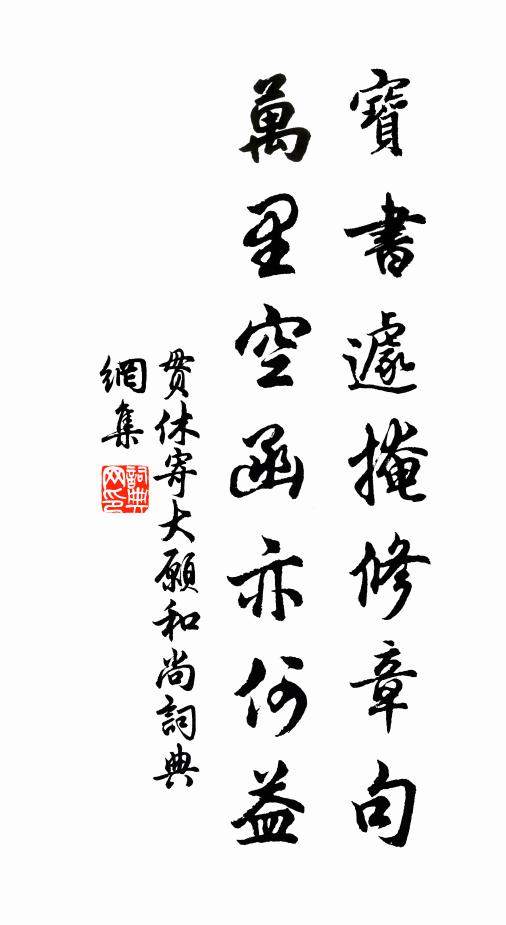 寶書遽掩修章句
萬里空函亦何益
貫休寄大願和尚詞典
網集
詞典網印